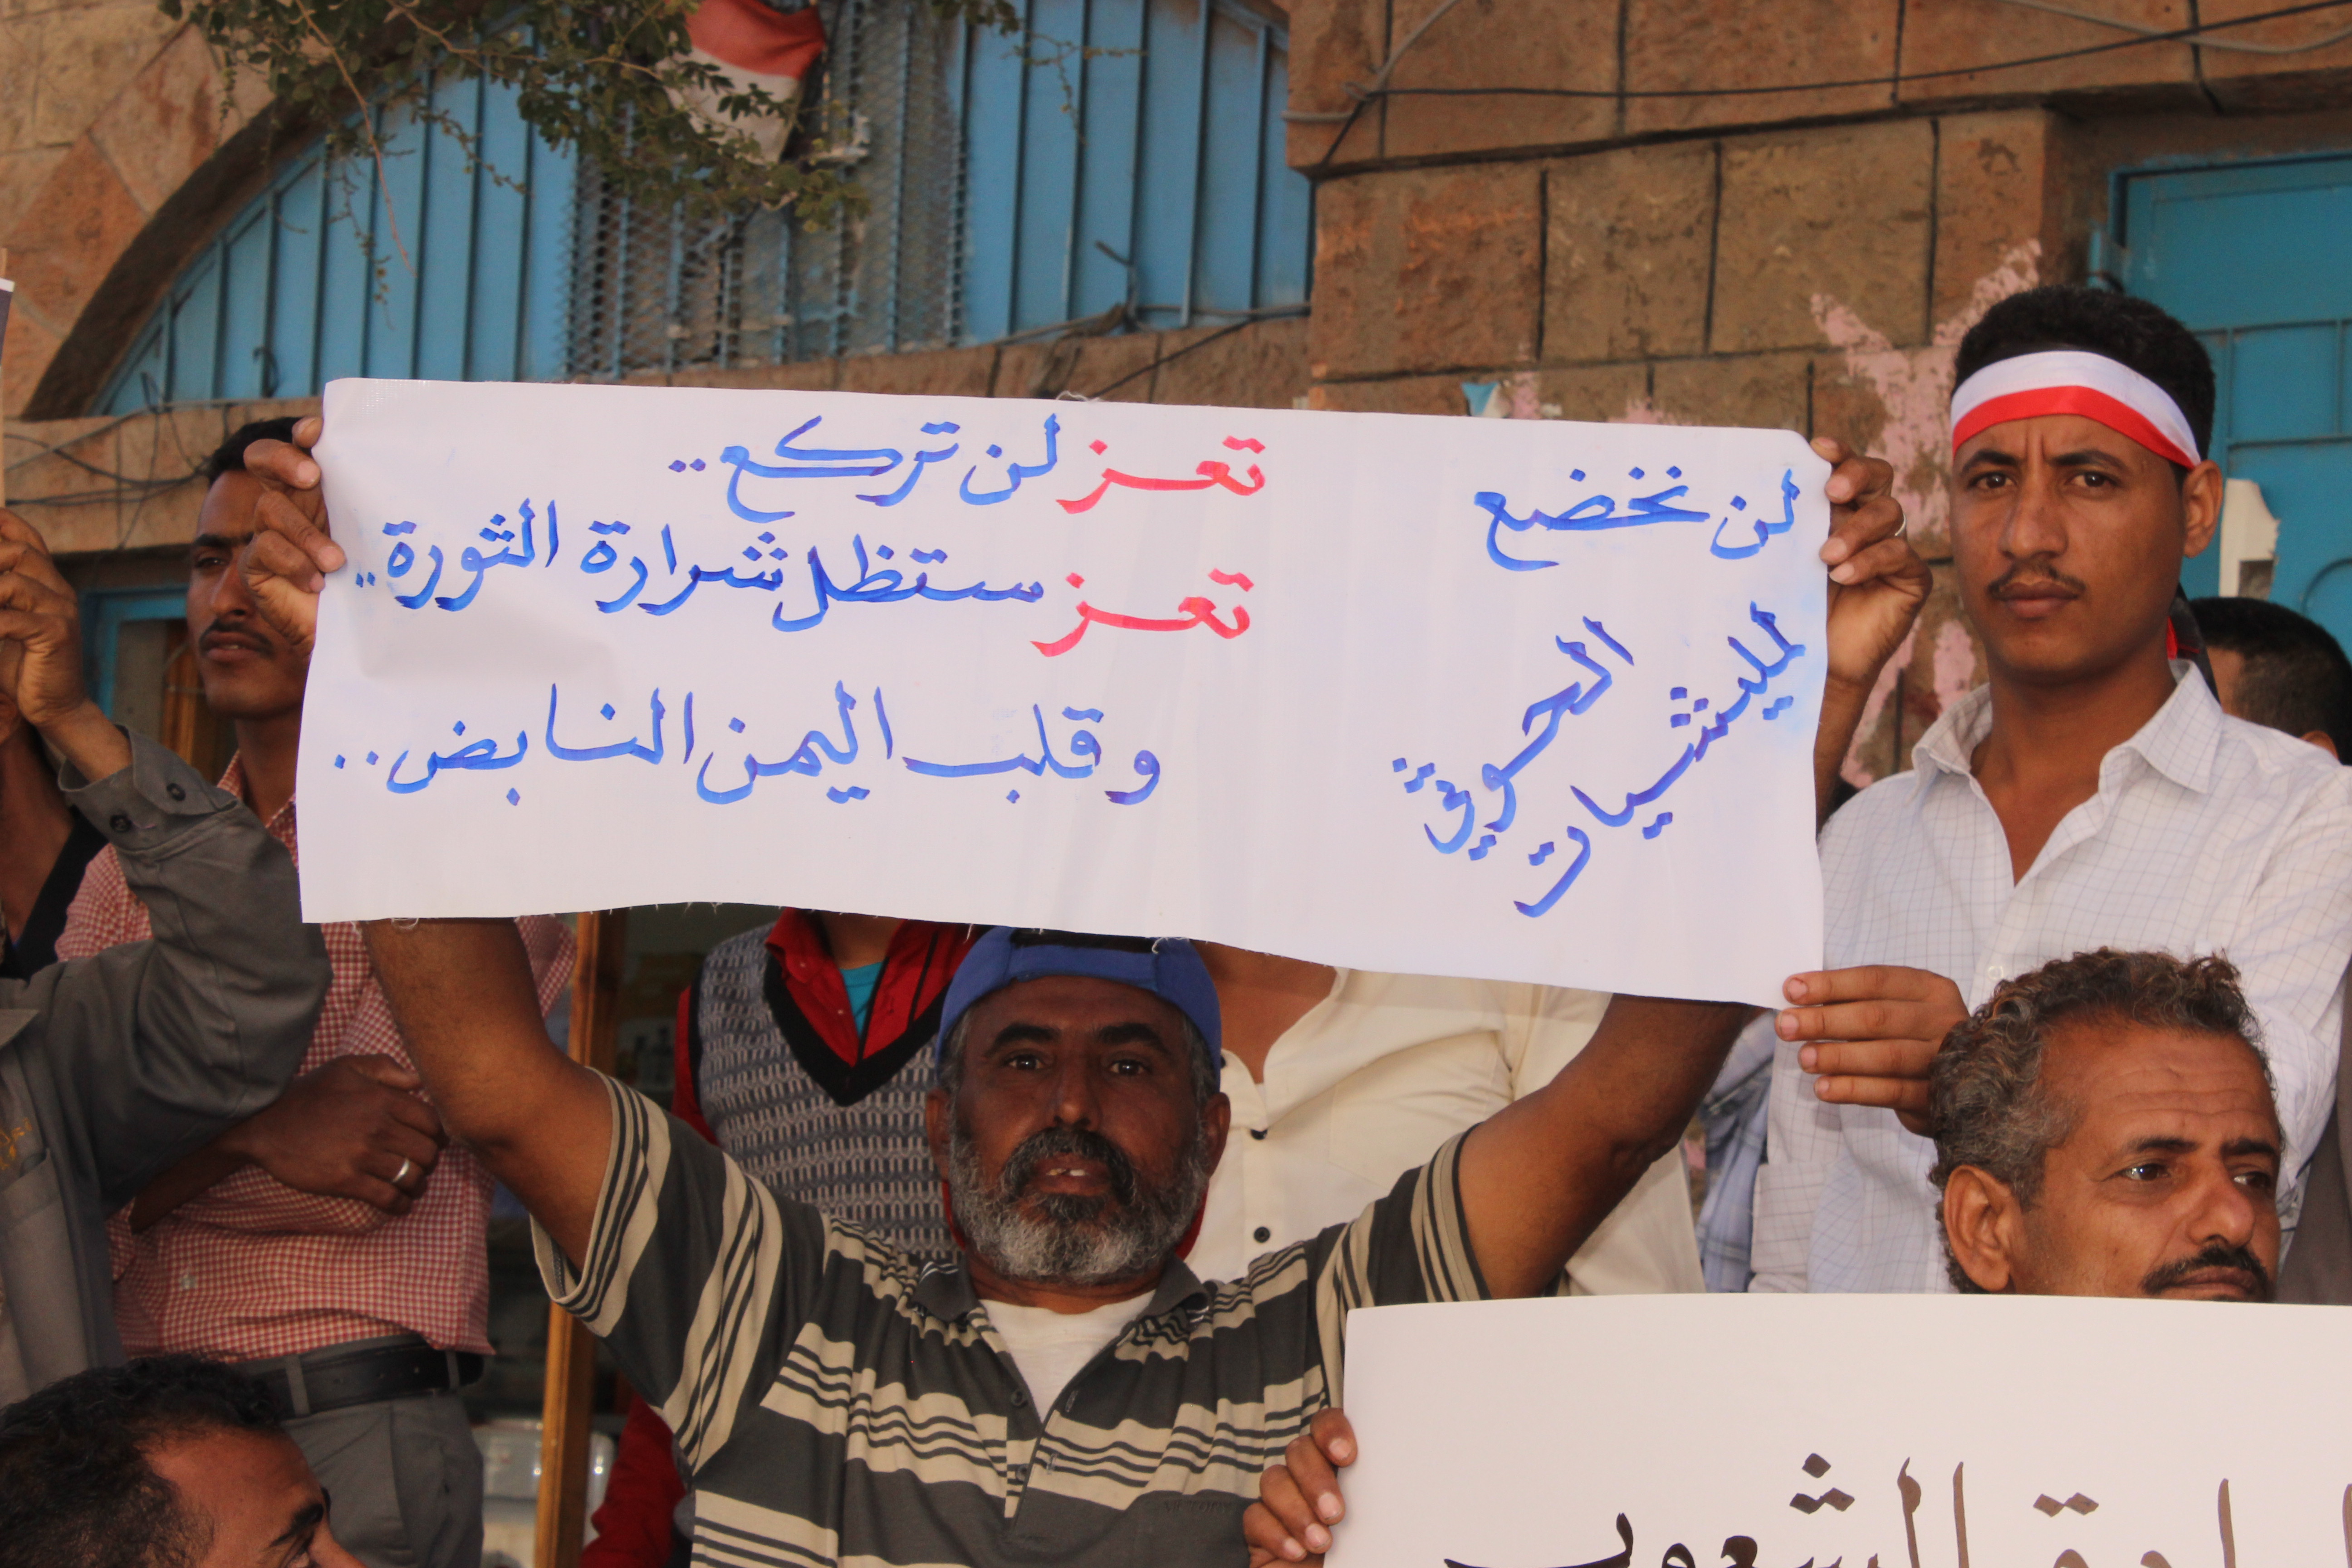 لن نخضع
لمليشيات
الحوثي
تعز لن تركع..
تعز ستظل شرارة الثورة..
وقلب اليمن النابض..
الشعوب